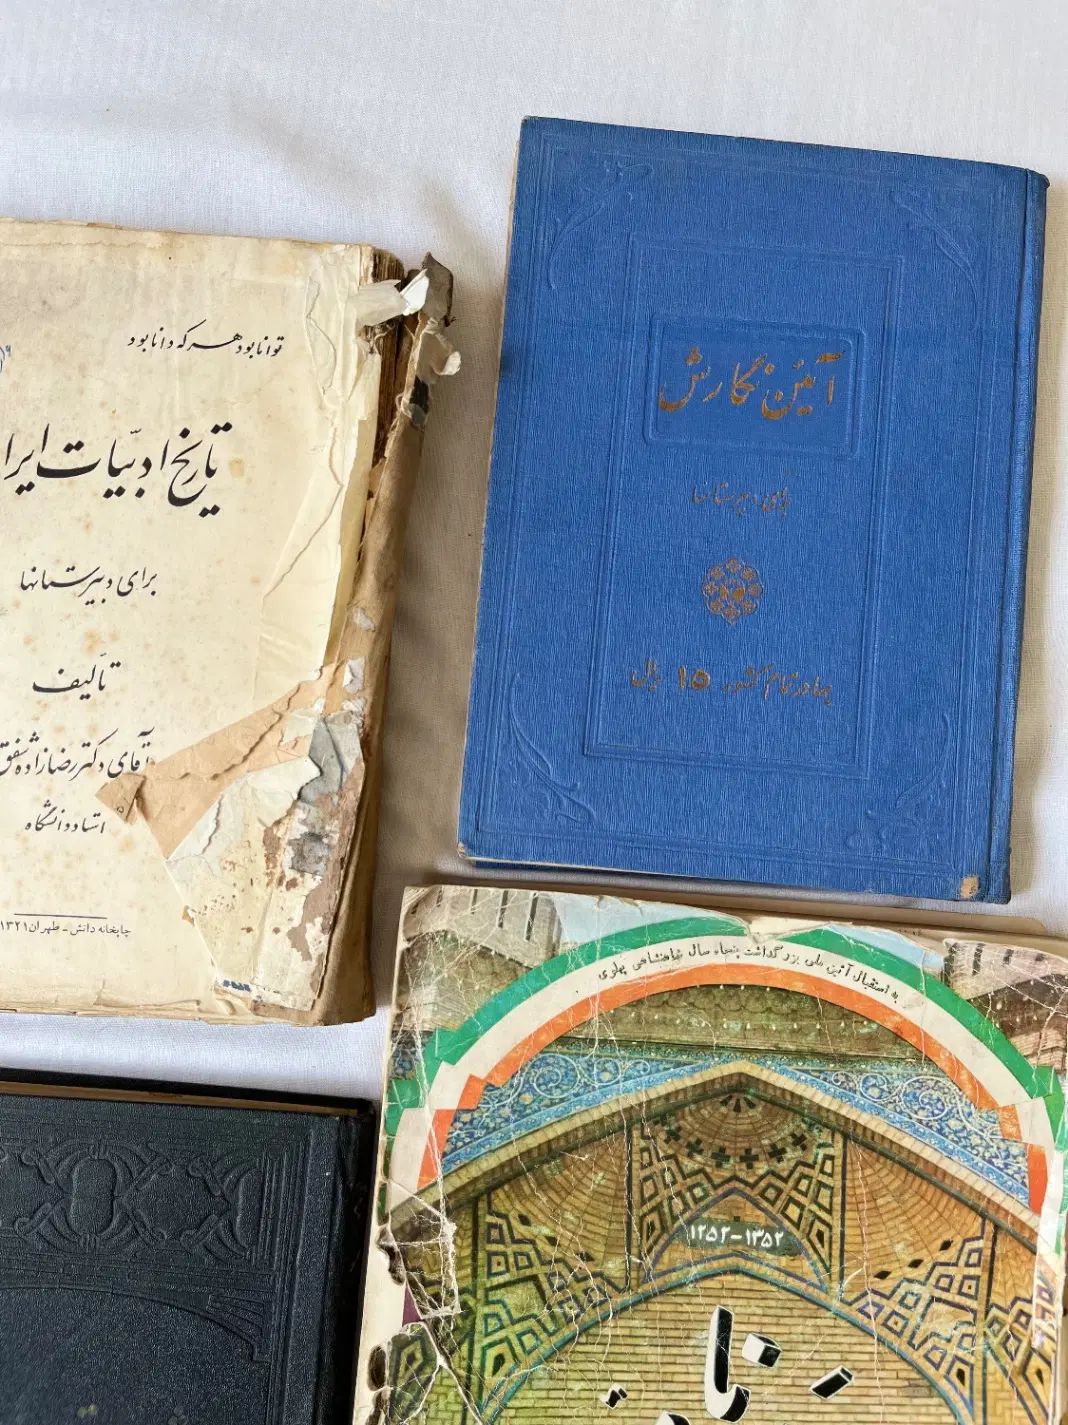 توانا بود هر که دانا بود
تاریخ ادبیّات
برای دبیرستانها
تألیف
آقای دکتر رضازاده شفق
استاد دانشگاه
چاپخانه دانش - طهران ۱۳۲۱
آئین نگارش
برای دبیرستانها
بها در تمام کشور ۱۵ ریال
به استقبال آئین ملی بزرگداشت پنجاه سال شاهنشاهی پهلوی
۱۲۵۲-۱۳۵۲